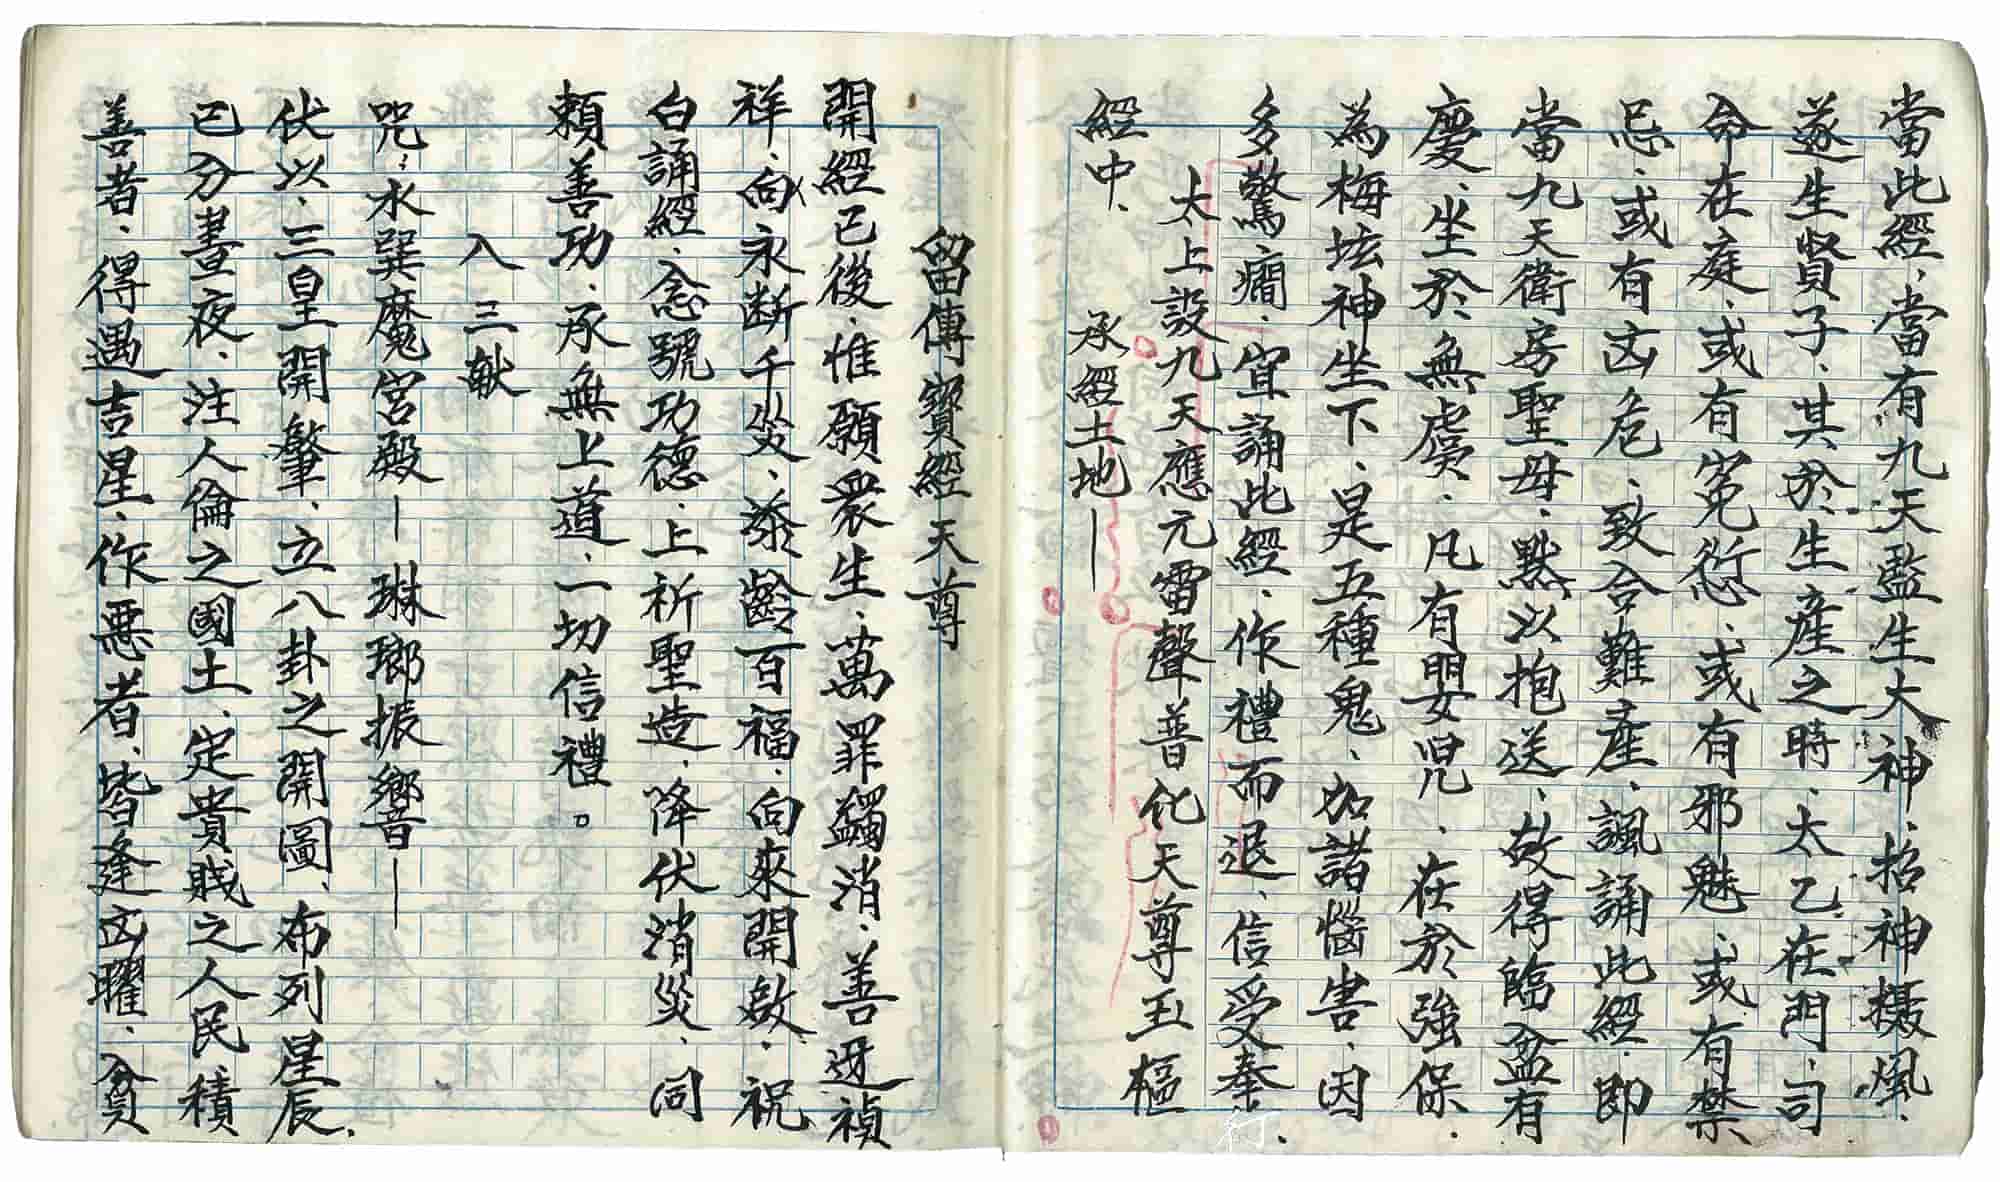 當此經，當有九天監生大神、招神攝風、
遂生賢子、其於生產之時、太乙在門、司
命在庭、或有冤愆、或有邪魅、或有禁
忌、或有凶危、致合難產、諷誦此經、即
當九天衛房聖母、默以抱送、故得臨盆有
慶、坐於無虞、凡有嬰児、在於強保、
為梅垓神坐下、是五種鬼、加諸惱害、因
多驚癇、宜誦此經、作禮而退、信受奉行、
太上設九天應元雷聲普化天尊玉樞
經中、　承經土地—
留傳寶經天尊
開經已後、惟願衆生、萬罪蠲消、善迓禎
祥、向永断千災、添齡百福、向來開啟、祝
白誦經、念號功德、上祈聖造、降伏消災、同
頼善功、承無上道、一切信禮。
入三献
咒：水巽魔宮殿—琳瑯振響—
伏以、三皇開肇、立八卦之開圖、布列星辰、
已分晝夜、注人倫之國土、定貴賎之人民、積
善者、得遇吉星、作悪者、皆逢凶曜、貧